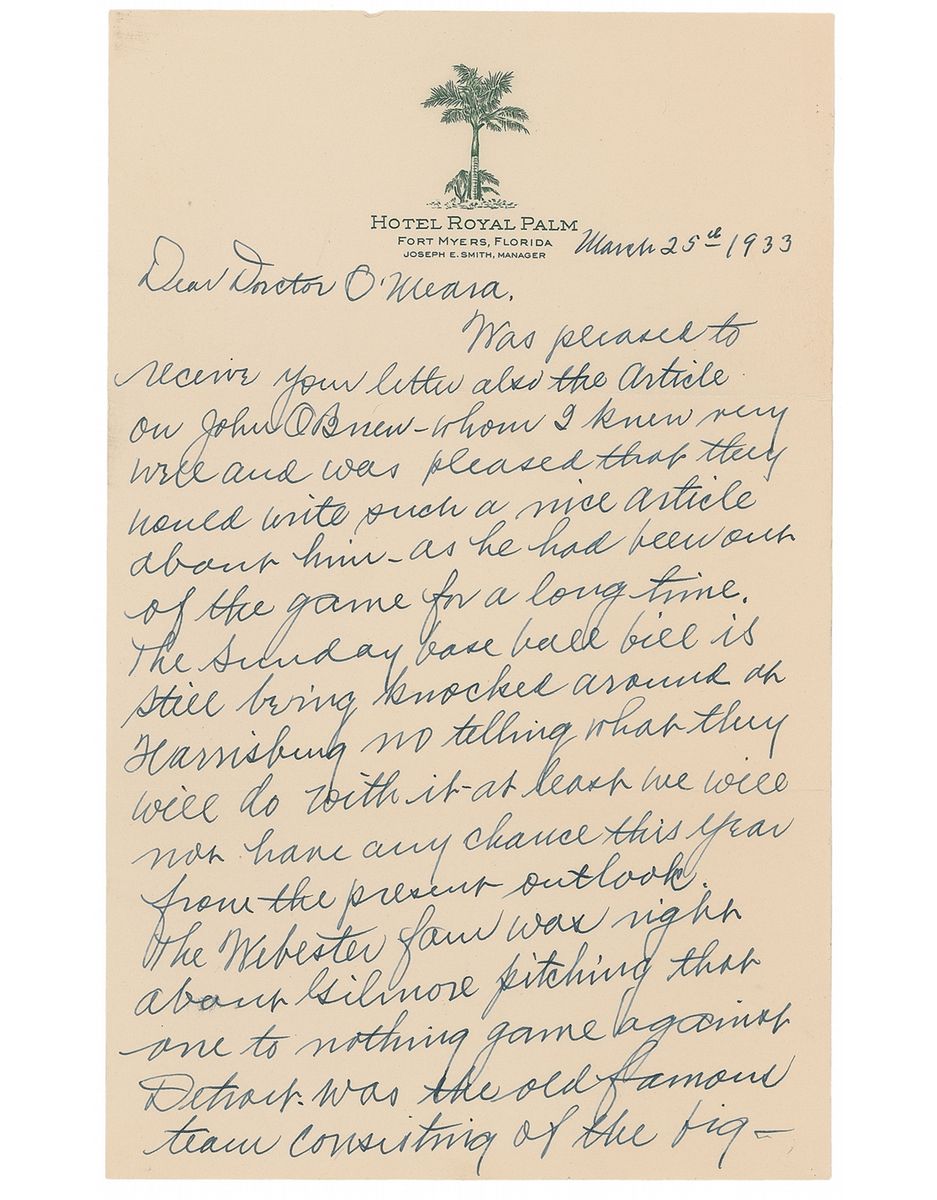 HOTEL ROYAL PALM
FORT MYERS, FLORIDA
JOSEPH E. SMITH, MANAGER
March 25th 1933
Dear Doctor O'Meara,
Was pleased to
receive your letter also the Article
on John O Brien - whom I knew very
well and was pleased that they
would write such a nice article
about him - as he had been out
of the game for a long time.
The Sunday base ball bill is
still being knocked around at
Harrisburg no telling what they
will do with it - at least we will
not have any chance this year
from the present outlook.
The Webester fan was right
about Gilmore pitching that
one to nothing game against
Detroit. was the old famous
team consisting of the big -